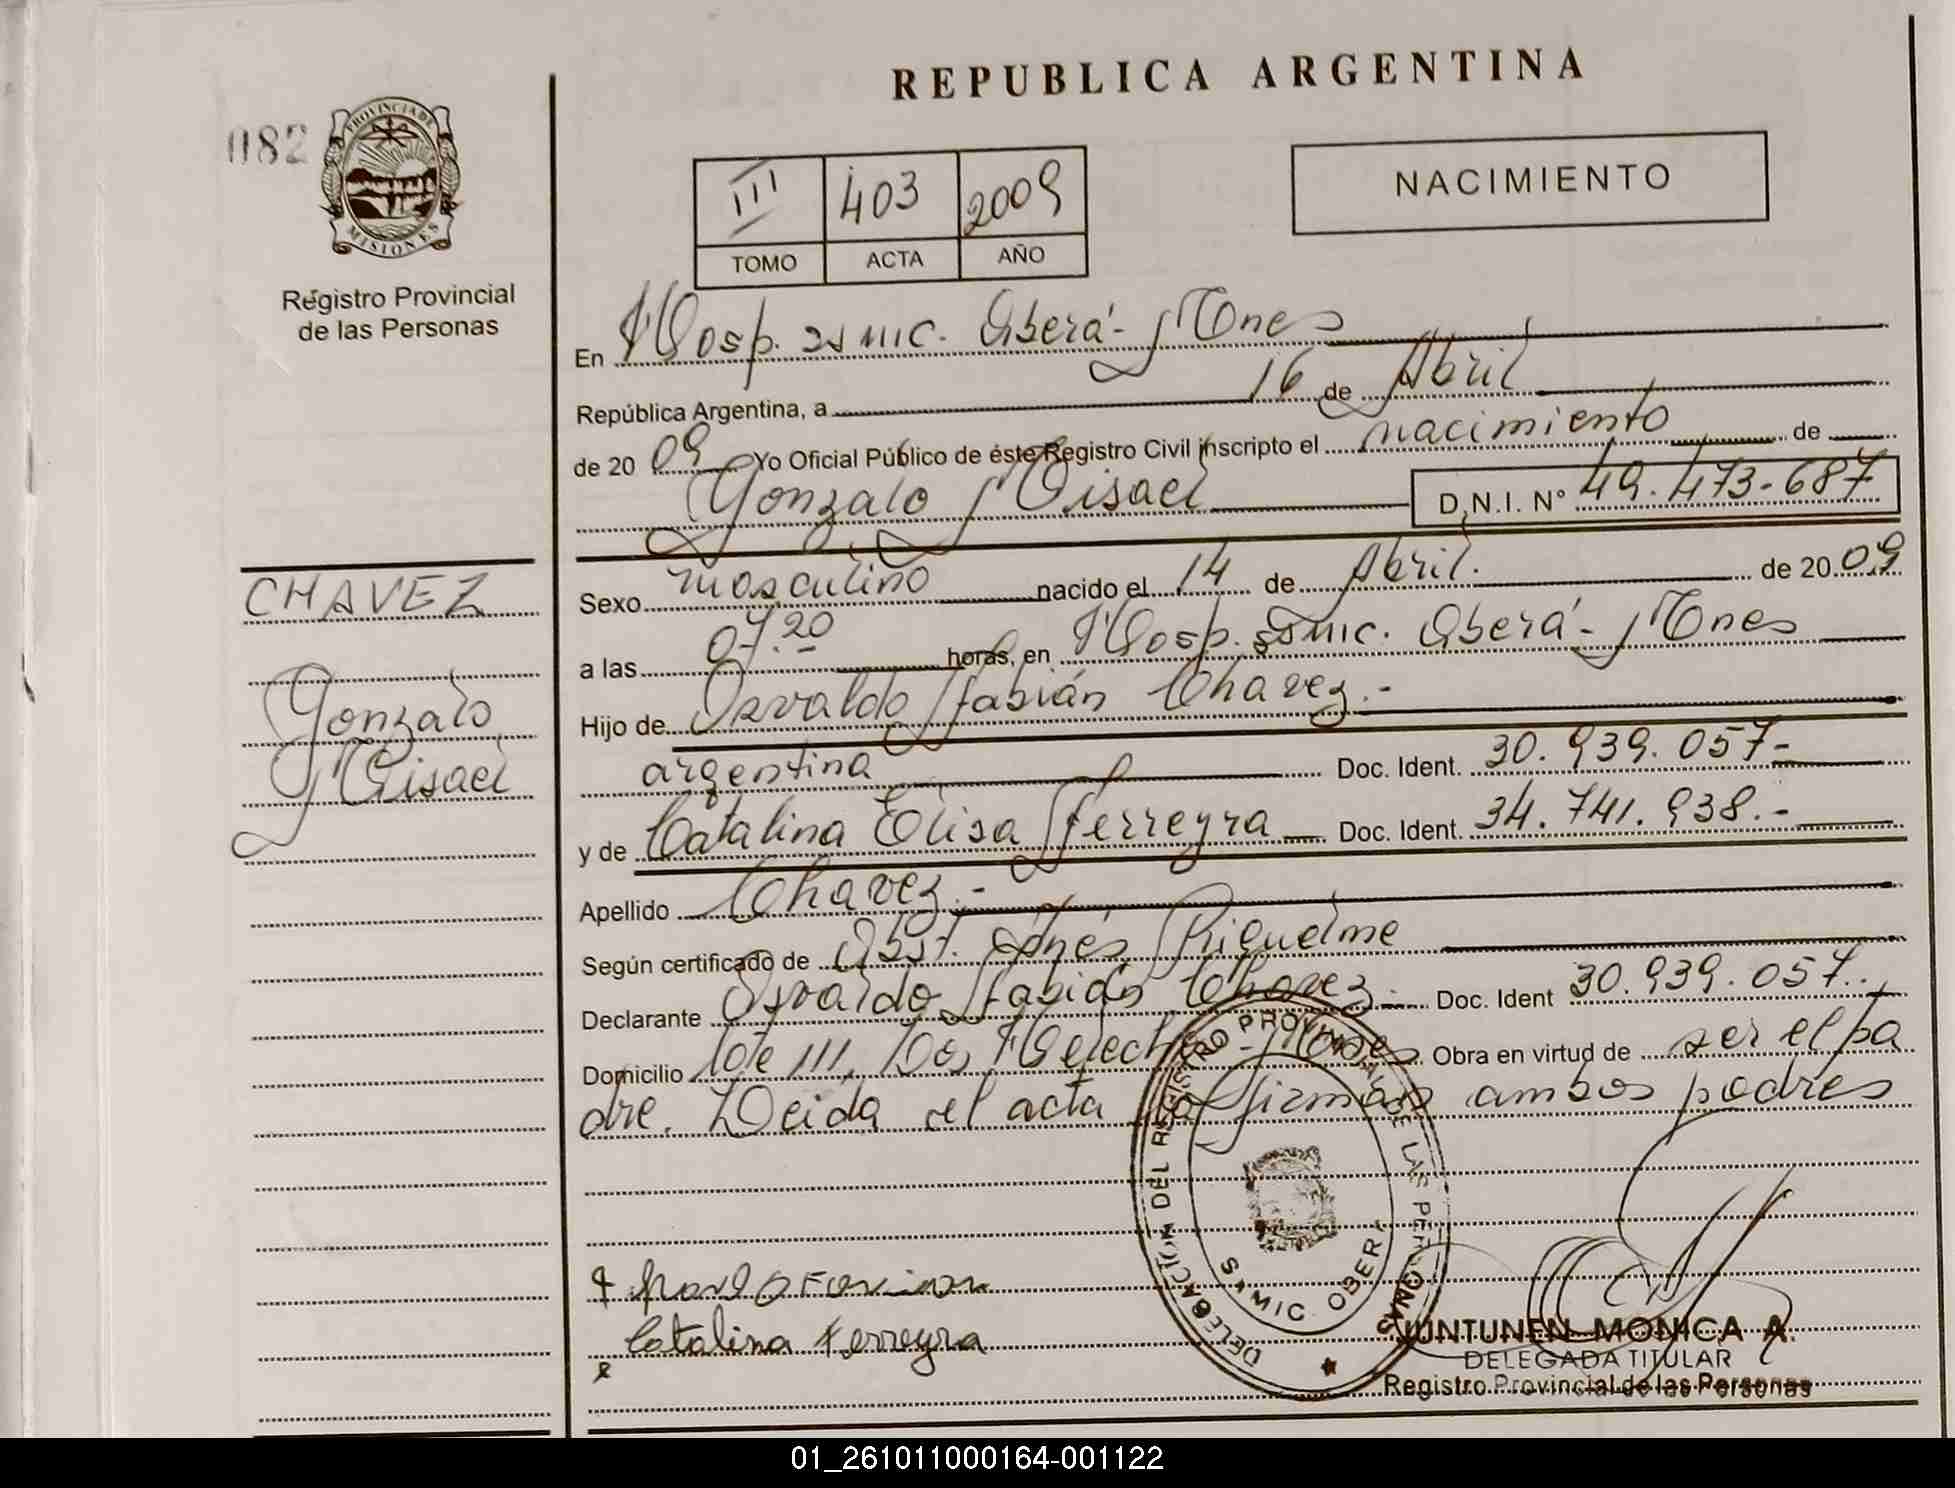 REPUBLICA ARGENTINA
082
PROVINCIA DE MISIONES
Registro Provincial
de las Personas
III 403 2009
TOMO ACTA AÑO
NACIMIENTO
En Hosp. Samic. Oberá - Mnes
República Argentina, a 16 de Abril
de 20 09 Yo Oficial Público de éste Registro Civil inscripto el nacimiento de
Gonzalo Misael D.N.I. Nº 49.473.687
CHAVEZ
Gonzalo
Misael
Sexo masculino nacido el 14 de Abril. de 20 09
a las 07.20 horas, en Hosp. Samic. Oberá - Mnes
Hijo de Osvaldo Fabián Chavez.-
argentina Doc. Ident. 30.939.057-
y de Catalina Elisa Ferreyra Doc. Ident. 34.741.938.-
Apellido Chavez.-
Según certificado de Obst. Inés Riquelme
Declarante Osvaldo Fabián Chavez.- Doc. Ident 30.939.057.
Domicilio Lote 111, Dos Obra en virtud de ser el pa
dre. Leida el acta la firman ambos padres
DELEGACION DEL REGISTRO PROVINCIAL DE LAS PERSONAS
SAMIC OBERA
Catalina Ferreyra
JUNTUNEN MONICA A.
DELEGADA TITULAR
Registro Provincial de las Personas
01_261011000164-001122